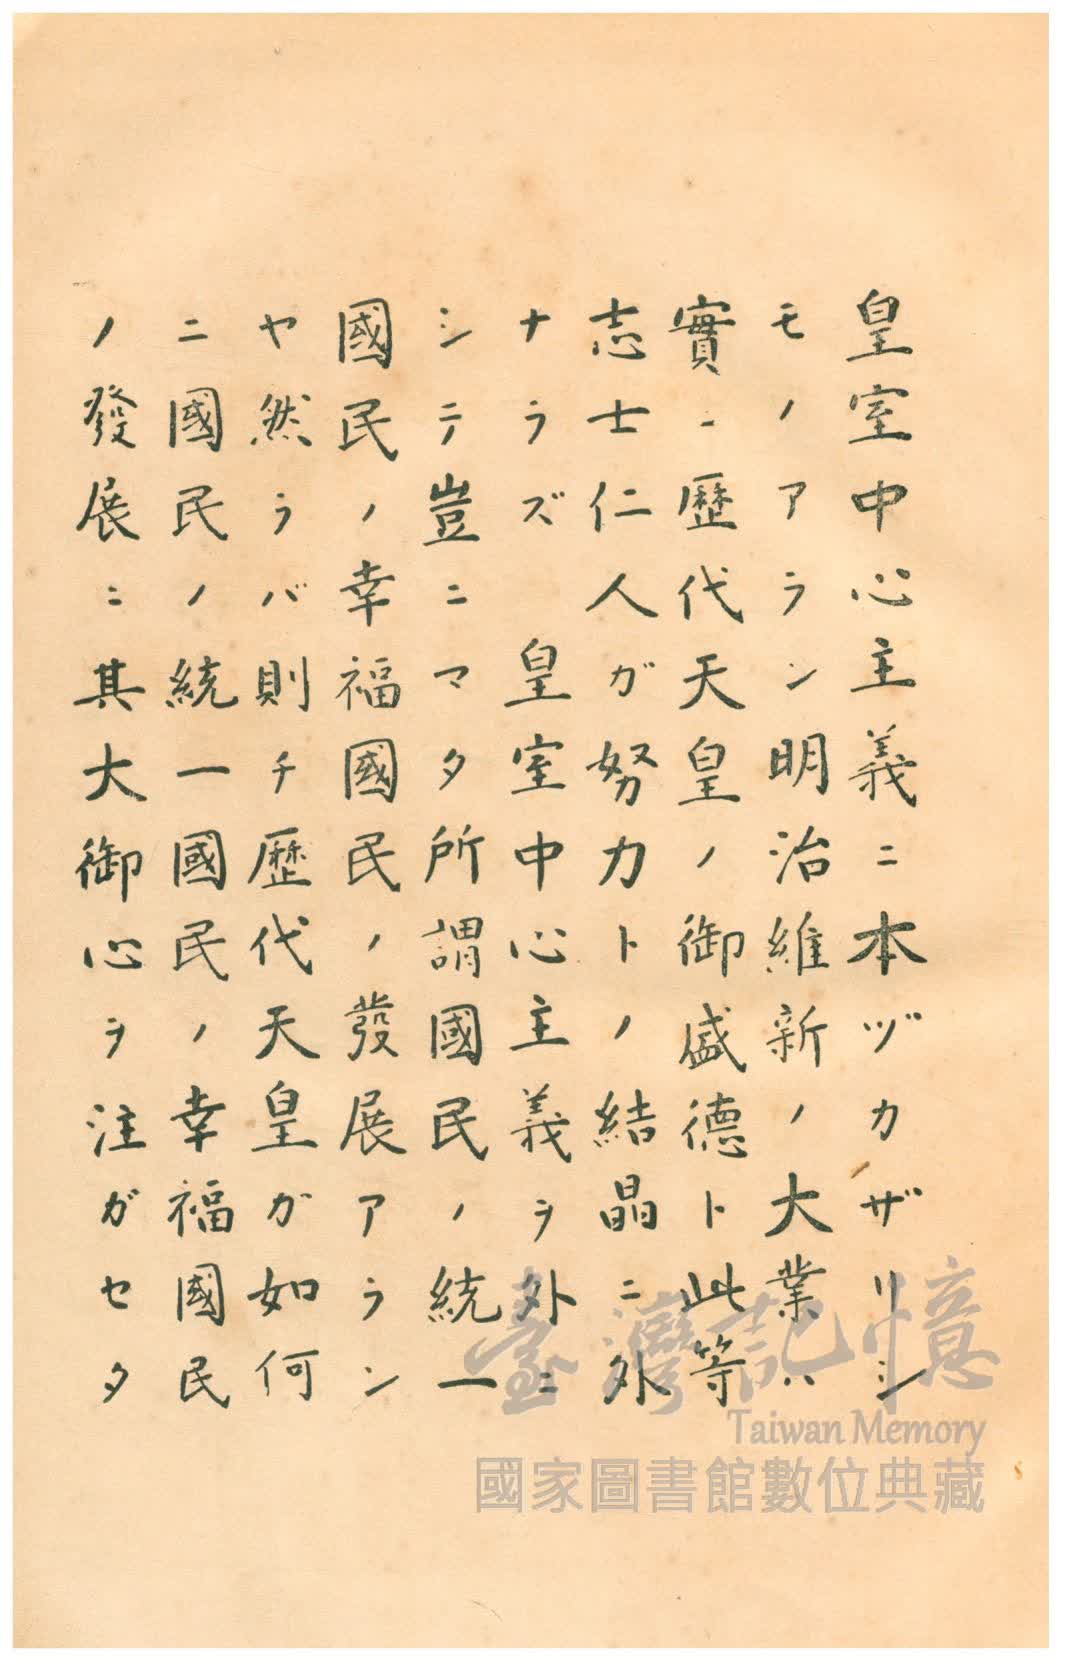 皇室中心主義ニ本ヅカザリシ
モノアラン明治維新ノ大業ハ
實ニ歷代天皇ノ御盛德ト此等
志士仁人ガ努力トノ結晶ニ外
ナラズ　皇室中心主義ヲ外ニ
シテ豈ニマタ所謂國民ノ統一
國民ノ幸福國民ノ發展アラン
ヤ然ラバ則チ歷代天皇ガ如何
ニ國民ノ統一國民ノ幸福國民
ノ發展ニ其大御心ヲ注ガセタ
臺灣記憶
Taiwan Memory
國家圖書館數位典藏